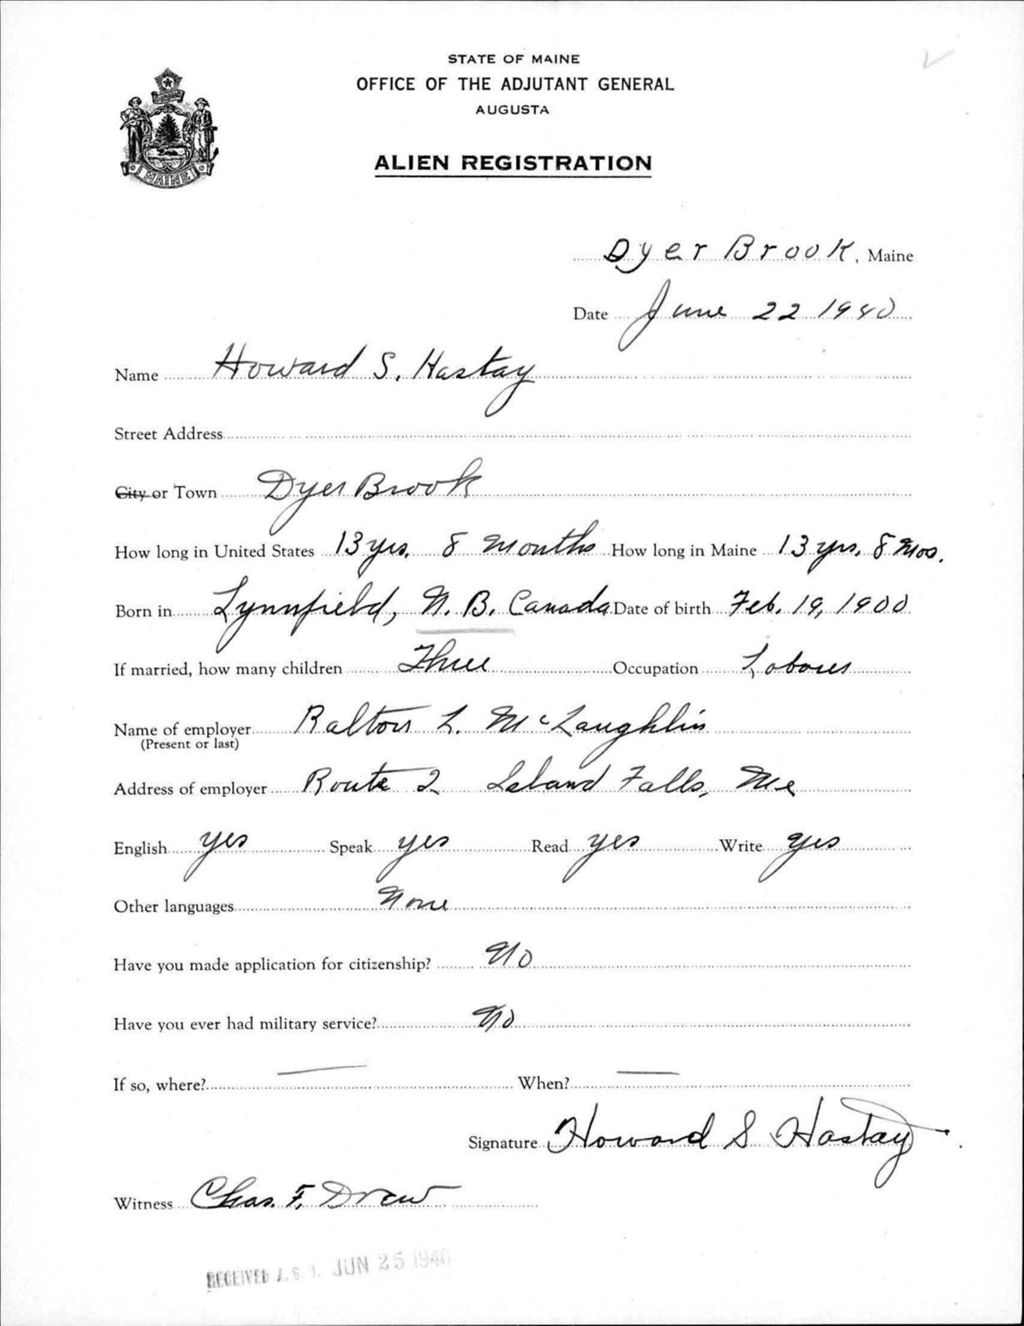 STATE OF MAINE
OFFICE OF THE ADJUTANT GENERAL
AUGUSTA
MAINE
ALIEN REGISTRATION
Dyer Brook, Maine
Date June 22 1940
Name Howard S. Hastay
Street Address
City or Town Dyer Brook
How long in United States 13 yrs. 8 Months How long in Maine 13 yrs. 8 Mos.
Born in Lynnfield, N. B. Canada Date of birth Feb. 19, 1900
If married, how many children Three Occupation Laborer
Name of employer Ralton L. McLaughlin
(Present or last)
Address of employer Route 2 Island Falls, Me
English yes Speak yes Read yes Write yes
Other languages None
Have you made application for citizenship? No
Have you ever had military service? No
If so, where? — When? —
Signature Howard S Hastay
Witness Chas. F. Drew
RECEIVED A.G.O. JUN 25 1940